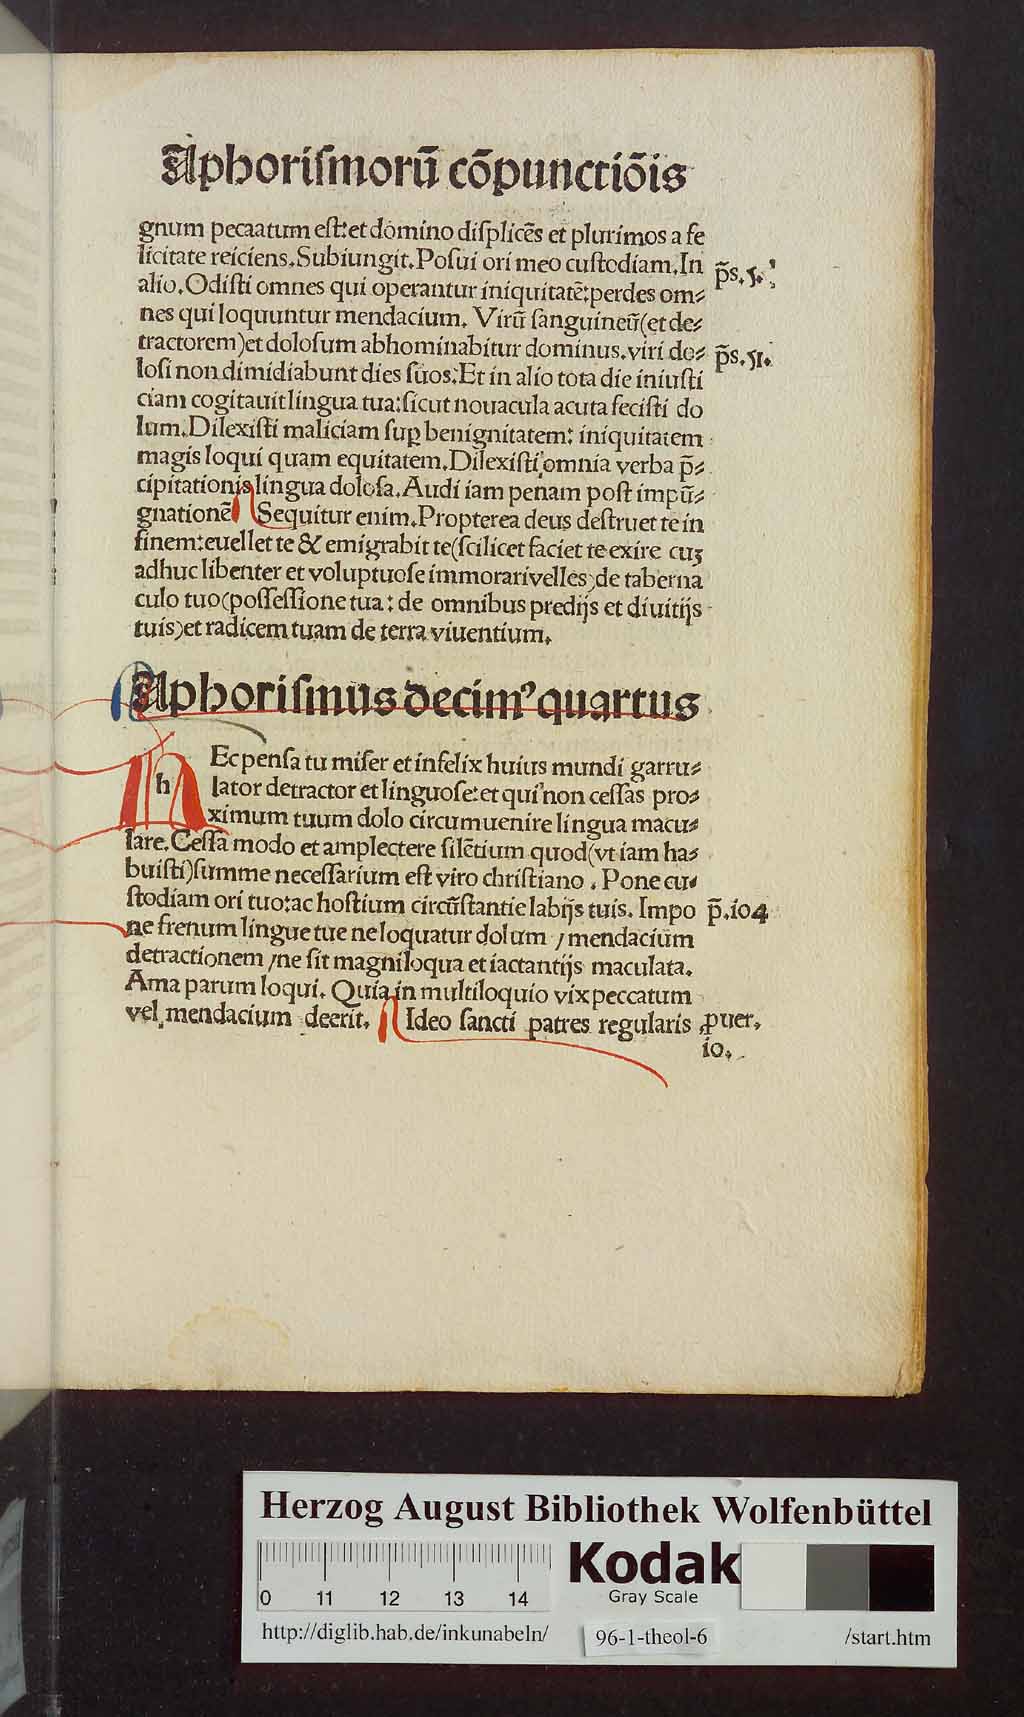 Aphoriſmorū cōpunctiōis
gnum pecaatum eſt:et domino diſplicēs et plurimos a fe
licitate reiciens.Subiungit.Poſui ori meo cuſtodiam.In
p̄s.5.
alio.Odiſti omnes qui operantur iniquitatē:perdes om⸗
nes qui loquuntur mendacium. Virū ſanguineū(et de⸗
tractorem)et doloſum abhominabitur dominus.viri do⸗
p̄s.51.
loſi non dimidiabunt dies ſuos:Et in alio tota die iniuſti
ciam cogitauit lingua tua:ſicut nouacula acuta feciſti do
lum.Dilexiſti maliciam ſuꝑ benignitatem: iniquitatem
magis loqui quam equitatem.Dilexiſti omnia verba p̄⸗
cipitationis lingua doloſa.Audi iam penam poſt impū⸗
gnationē Sequitur enim.Propterea deus deſtruet te in
finem:euellet te & emigrabit te(ſcilicet faciet te exire cuꝫ
adhuc libenter et voluptuoſe immorari velles)de taberna
culo tuo(poſſeſſione tua: de omnibus predijs et diuitijs
tuis)et radicem tuam de terra viuentium.
Aphoriſmus decimꝰ quartus
h Ec penſa tu miſer et infelix huius mundi garru⸗
lator detractor et linguoſe:et qui non ceſſas pro⸗
ximum tuum dolo circumuenire lingua macu⸗
lare.Ceſſa modo et amplectere ſilētium quod(vt iam ha⸗
buiſti)ſumme neceſſarium eſt viro chriſtiano . Pone cu⸗
ſtodiam ori tuo:ac hoſtium circūſtantie labijs tuis. Impo
p̄.104
ne frenum lingue tue ne loquatur dolum / mendacium
detractionem /ne ſit magniloqua et iactantijs maculata.
Ama parum loqui. Quia in multiloquio vix peccatum
vel mendacium deerit. Ideo ſancti patres regularis
ꝓuer.
10.
Herzog August Bibliothek Wolfenbüttel
0 11 12 13 14
Kodak
Gray Scale
http://diglib.hab.de/inkunabeln/ 96-1-theol-6 /start.htm